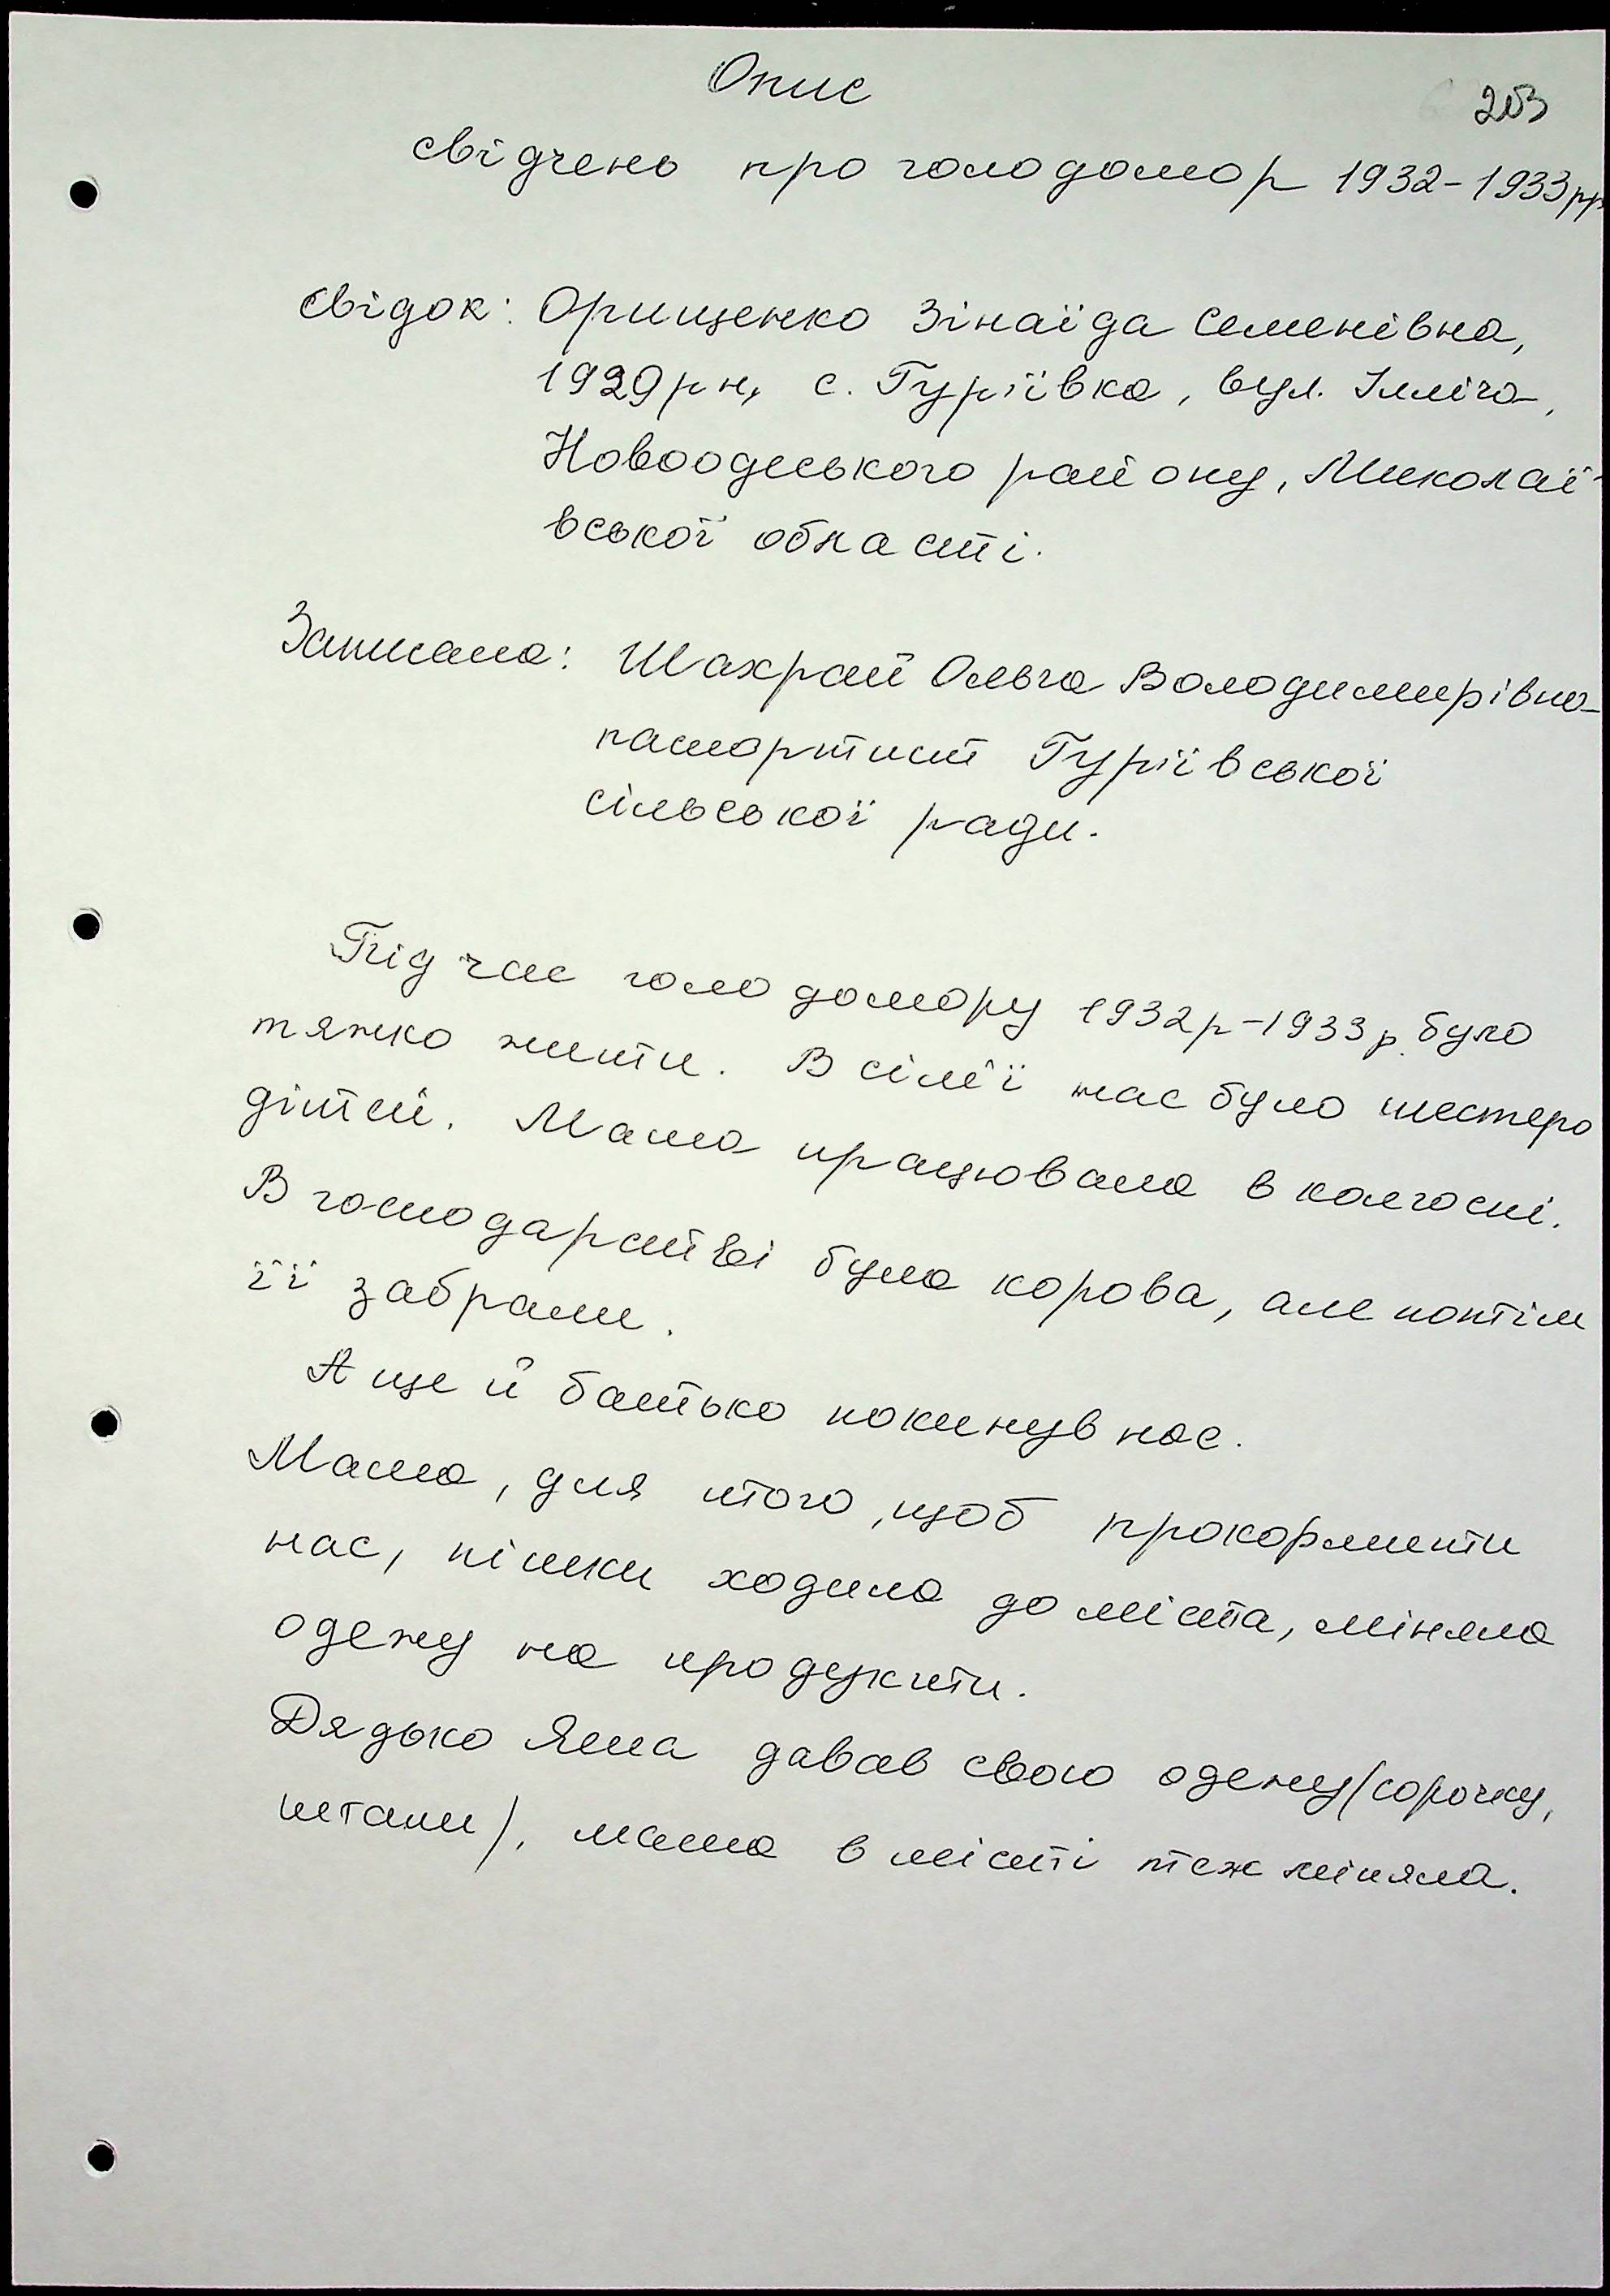 Опис
203
свідчень про голодомор 1932-1933рр
свідок: Орищенко Зінаїда Семенівна,
1929рн, с. Гур'ївка, вул. Ілліча,
Новоодеського району, Миколаї-
вської області.
Записала: Шахрай Ольга Володимирівна-
паспортист Гур'ївської
сільської ради.
Під час голодомору 1932р-1933р. було
тяжко жити. В сім'ї нас було шестеро
дітей. Мама працювала в колгоспі.
В господарстві була корова, але потім
її забрали.
А ще й батько покинув нас.
Мама, для того, щоб прокормити
нас, пішки ходила до міста, міняла
одежу на продукти.
Дядько Яша давав свою одежу/сорочку,
штани/, мама в місті теж міняла.